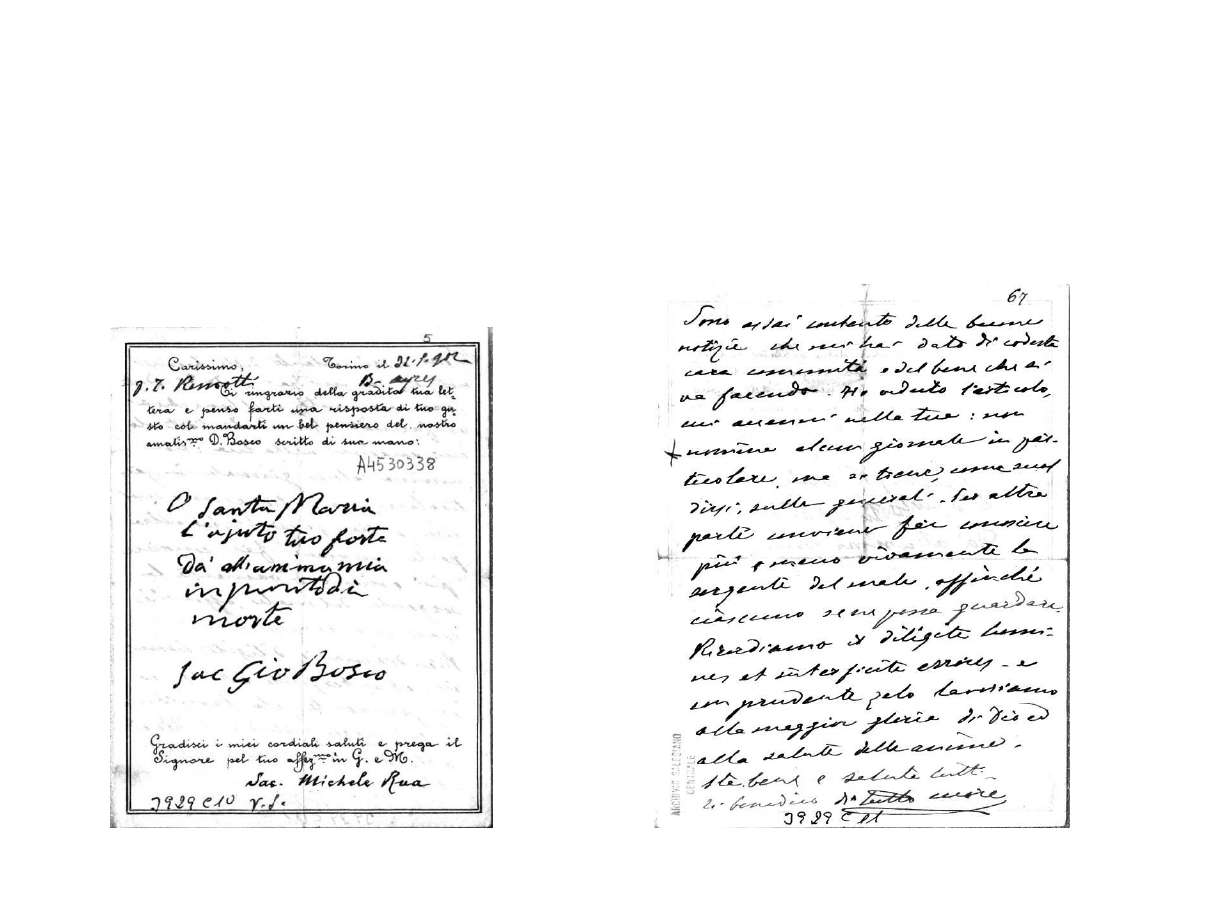 5
Carissimo, Torino il 22-1-902
g. T. Remotti B. ayres
Ti ringrazio della gradita tua let-
tera e penso farti una risposta di tuo gu-
sto col mandarti un bel pensiero del nostro
amatis.mo D. Bosco scritto di sua mano:
A4530338
O Santa Maria
L'ajuto tuo forte
Da' all'anima mia
in punto di
morte
Sac Gio Bosco
Gradisci i miei cordiali saluti e prega il
Signore pel tuo affez.mo in G. e M.
Sac. Michele Rua
3929 C10 V.S.
67
Sono assai contento delle buone
notizie che mi hai dato di codesta
cara comunità e del bene che si
va facendo. Ho veduto l'articolo,
cui accenni nella tua: non
nomina alcun giornale in par-
ticolare, ma si tiene, come suol
dirsi, sulle generali. Per altra
parte conviene far conoscere
più o meno vivamente la
sorgente del male, affinché
ciascuno se ne possa guardare.
Ricordiamo il diligite homi-
nes et interficite errores - e
con prudente zelo lavoriamo
alla maggior gloria di Dio ed
alla salute delle anime.
Sta bene e saluta tutti
Ti benedico di tutto cuore
ARCHIVIO SALESIANO
CENTRALE
3929 C11